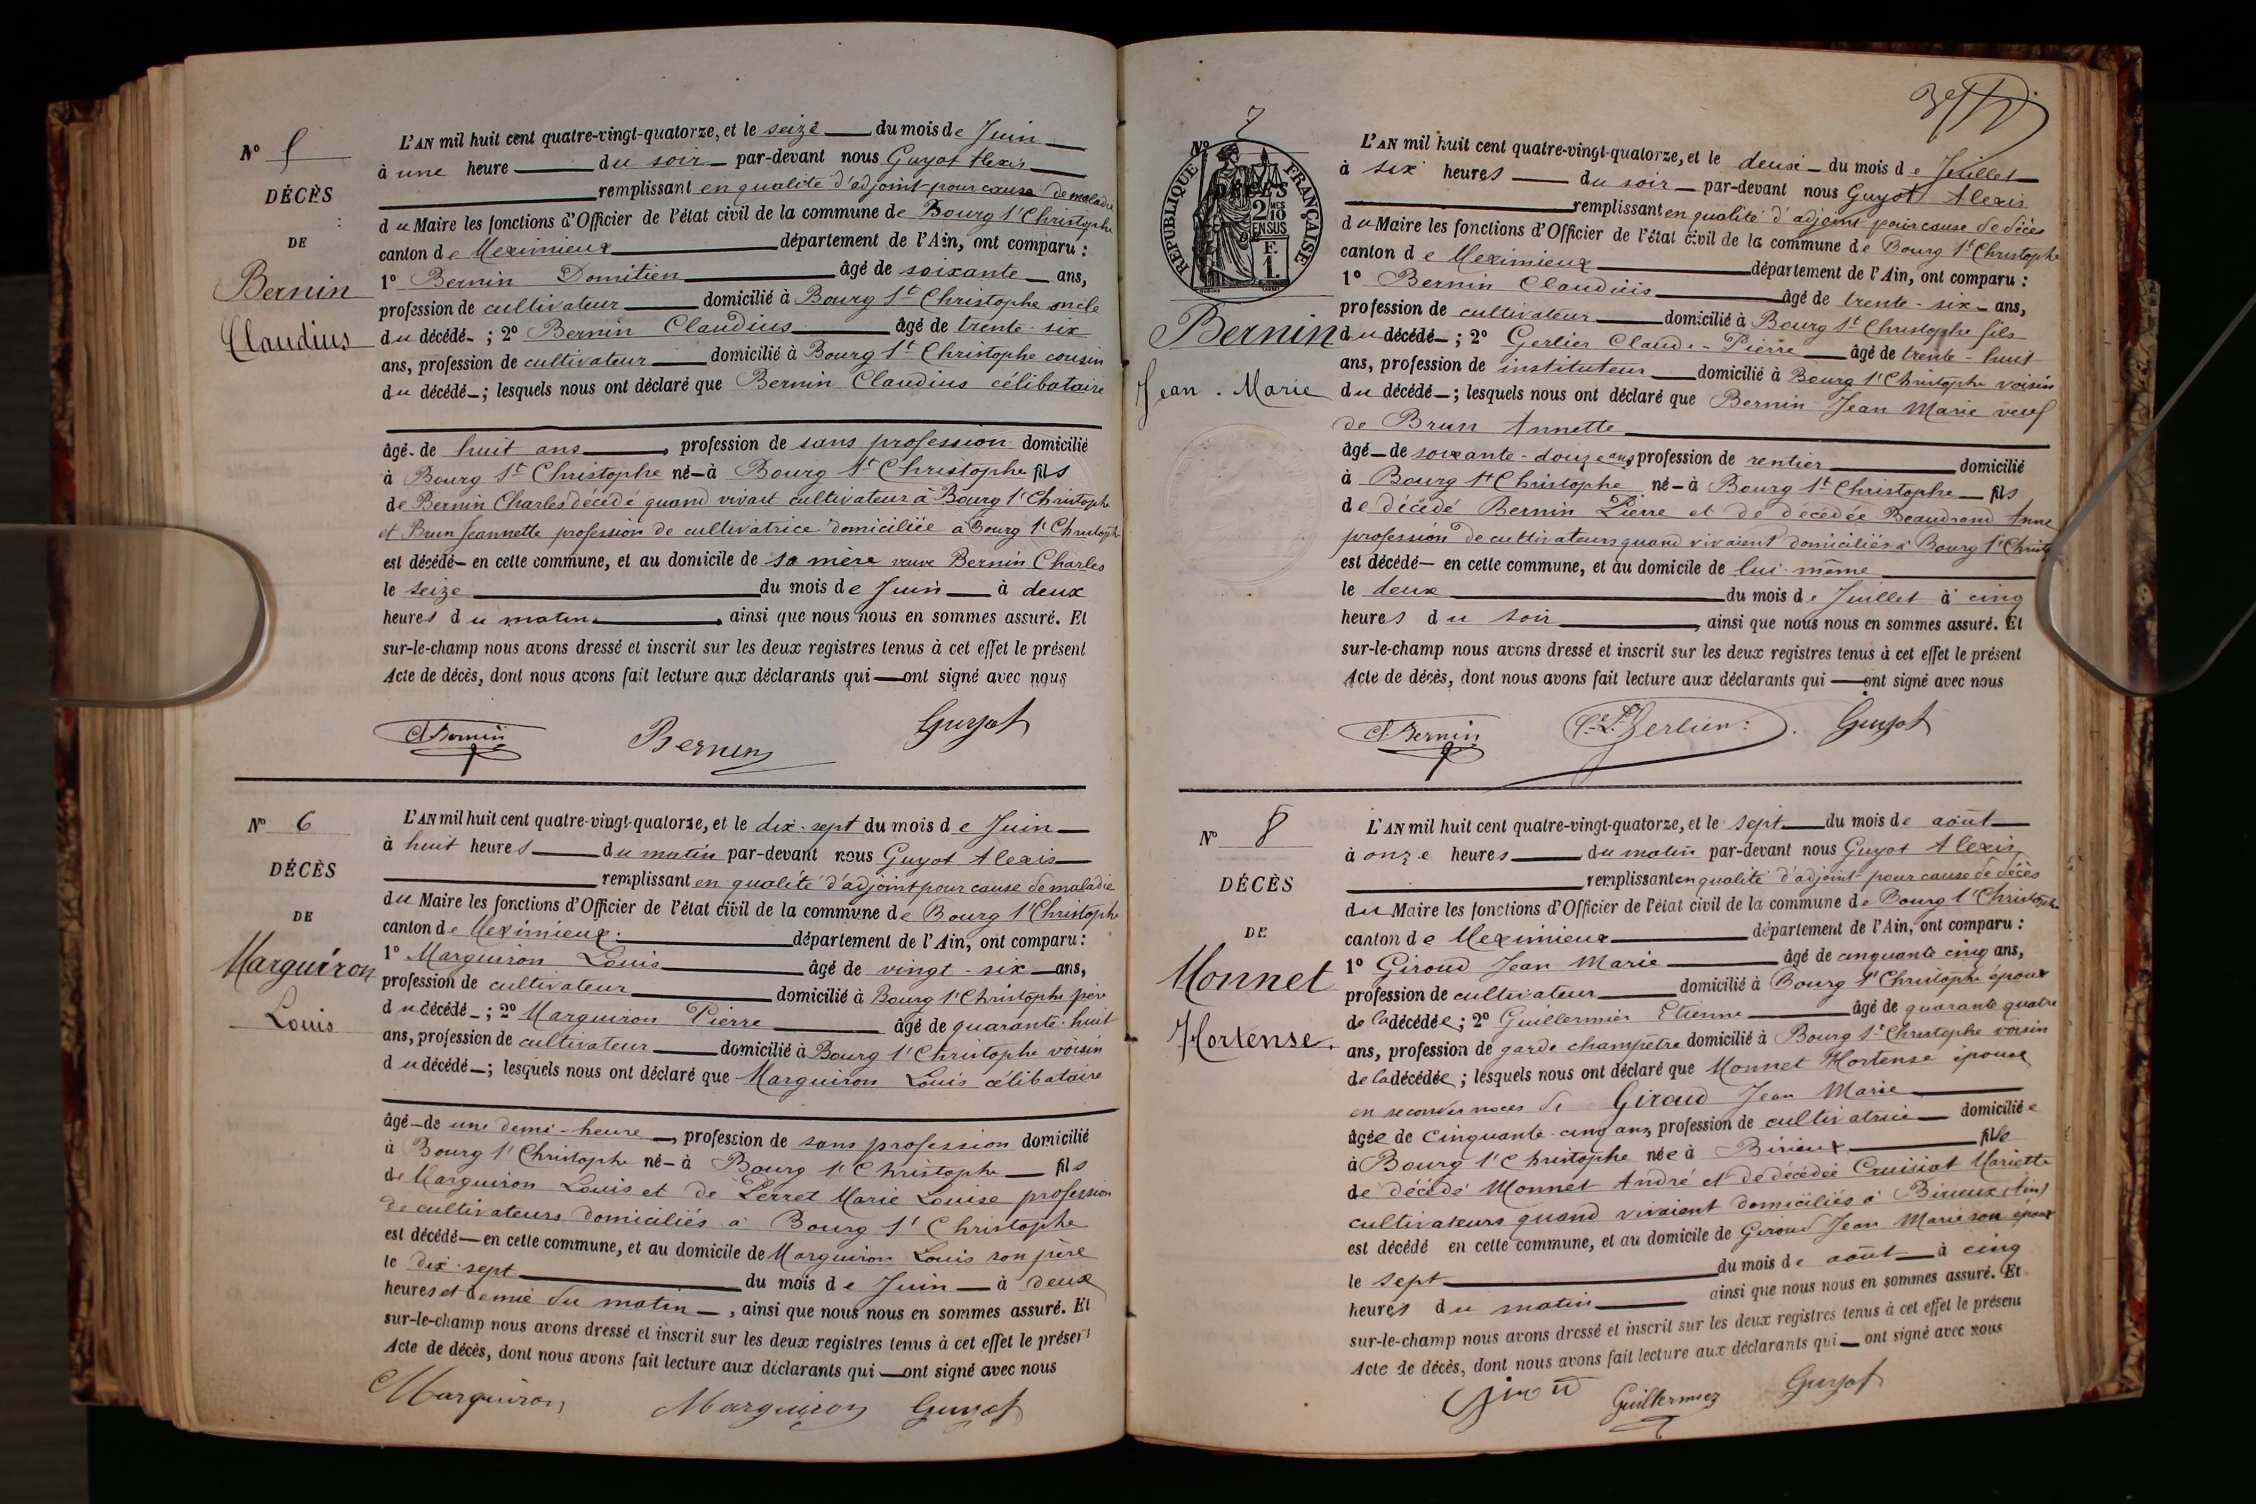 N° 5
DÉCÈS
DE
Bernin
Claudius
L'AN mil huit cent quatre-vingt-quatorze, et le seize du mois de Juin
à une heure du soir par-devant nous Guyot Alexis
remplissant en qualité d'adjoint pour cause de maladie
du Maire les fonctions d'Officier de l'état civil de la commune de Bourg St Christophe
canton de Meximieux département de l'Ain, ont comparu :
1° Bernin Domitien âgé de soixante ans,
profession de cultivateur domicilié à Bourg St Christophe oncle
du décédé ; 2° Bernin Claudius âgé de trente-six
ans, profession de cultivateur domicilié à Bourg St Christophe cousin
du décédé ; lesquels nous ont déclaré que Bernin Claudius célibataire
âgé de huit ans, profession de sans profession domicilié
à Bourg St Christophe né à Bourg St Christophe fils
de Bernin Charles décédé quand vivait cultivateur à Bourg St Christophe
et Brun Jeannette profession de cultivatrice domiciliée à Bourg St Christophe
est décédé en cette commune, et au domicile de sa mère veuve Bernin Charles
le seize du mois de Juin à deux
heures du matin, ainsi que nous nous en sommes assuré. Et
sur-le-champ nous avons dressé et inscrit sur les deux registres tenus à cet effet le présent
Acte de décès, dont nous avons fait lecture aux déclarants qui ont signé avec nous
Cl Bernin Bernin Guyot
N° 6
DÉCÈS
DE
Marguiron
Louis
L'AN mil huit cent quatre-vingt-quatorze, et le dix-sept du mois de Juin
à huit heures du matin par-devant nous Guyot Alexis
remplissant en qualité d'adjoint pour cause de maladie
du Maire les fonctions d'Officier de l'état civil de la commune de Bourg St Christophe
canton de Meximieux département de l'Ain, ont comparu :
1° Marguiron Louis âgé de vingt-six ans,
profession de cultivateur domicilié à Bourg St Christophe père
du décédé ; 2° Marguiron Pierre âgé de quarante-huit
ans, profession de cultivateur domicilié à Bourg St Christophe voisin
du décédé ; lesquels nous ont déclaré que Marguiron Louis célibataire
âgé de une demi-heure, profession de sans profession domicilié
à Bourg St Christophe né à Bourg St Christophe fils
de Marguiron Louis et de Perret Marie Louise profession
de cultivateurs domiciliés à Bourg St Christophe
est décédé en cette commune, et au domicile de Marguiron Louis son père
le dix-sept du mois de Juin à deux
heures et demie du matin, ainsi que nous nous en sommes assuré. Et
sur-le-champ nous avons dressé et inscrit sur les deux registres tenus à cet effet le présent
Acte de décès, dont nous avons fait lecture aux déclarants qui ont signé avec nous
Marguiron Marguiron Guyot
N° 7
RÉPUBLIQUE FRANÇAISE
2 MES 10 EN SUS
F. 1.
Bernin
Jean-Marie
L'AN mil huit cent quatre-vingt-quatorze, et le deuxi du mois de Juillet
à six heures du soir par-devant nous Guyot Alexis
remplissant en qualité d'adjoint pour cause de décès
du Maire les fonctions d'Officier de l'état civil de la commune de Bourg St Christophe
canton de Meximieux département de l'Ain, ont comparu :
1° Bernin Claudius âgé de trente-six ans,
profession de cultivateur domicilié à Bourg St Christophe fils
du décédé ; 2° Gerlier Claude-Pierre âgé de trente-huit
ans, profession de instituteur domicilié à Bourg St Christophe voisin
du décédé ; lesquels nous ont déclaré que Bernin Jean Marie veuf
de Brun Annette
âgé de soixante-douze ans, profession de rentier domicilié
à Bourg St Christophe né à Bourg St Christophe fils
de décédé Bernin Pierre et de décédée Beaudrand Anne
profession de cultivateurs quand vivaient domiciliés à Bourg St Christ
est décédé en cette commune, et au domicile de lui-même
le deux du mois de Juillet à cinq
heures du soir, ainsi que nous nous en sommes assuré. Et
sur-le-champ nous avons dressé et inscrit sur les deux registres tenus à cet effet le présent
Acte de décès, dont nous avons fait lecture aux déclarants qui ont signé avec nous
Cl. Bernin Cl. P. Gerlier Guyot
N° 8
DÉCÈS
DE
Monnet
Hortense
L'AN mil huit cent quatre-vingt-quatorze, et le sept du mois de août
à onze heures du matin par-devant nous Guyot Alexis
remplissant en qualité d'adjoint pour cause de décès
du Maire les fonctions d'Officier de l'état civil de la commune de Bourg St Christophe
canton de Meximieux département de l'Ain, ont comparu :
1° Giroud Jean Marie âgé de cinquante cinq ans,
profession de cultivateur domicilié à Bourg St Christophe époux
de la décédée ; 2° Guillermier Etienne âgé de quarante quatre
ans, profession de garde champêtre domicilié à Bourg St Christophe voisin
de la décédée ; lesquels nous ont déclaré que Monnet Hortense épouse
en secondes noces de Giroud Jean Marie
âgée de cinquante-cinq ans, profession de cultivatrice domiciliée
à Bourg St Christophe née à Birieux fille
de décédé Monnet André et de décédée Cruisiat Mariette
cultivateurs quand vivaient domiciliés à Birieux (Ain)
est décédé en cette commune, et au domicile de Giroud Jean Marie son époux
le sept du mois de août à cinq
heures du matin ainsi que nous nous en sommes assuré. Et
sur-le-champ nous avons dressé et inscrit sur les deux registres tenus à cet effet le présent
Acte de décès, dont nous avons fait lecture aux déclarants qui ont signé avec nous
Giroud Guillermier Guyot